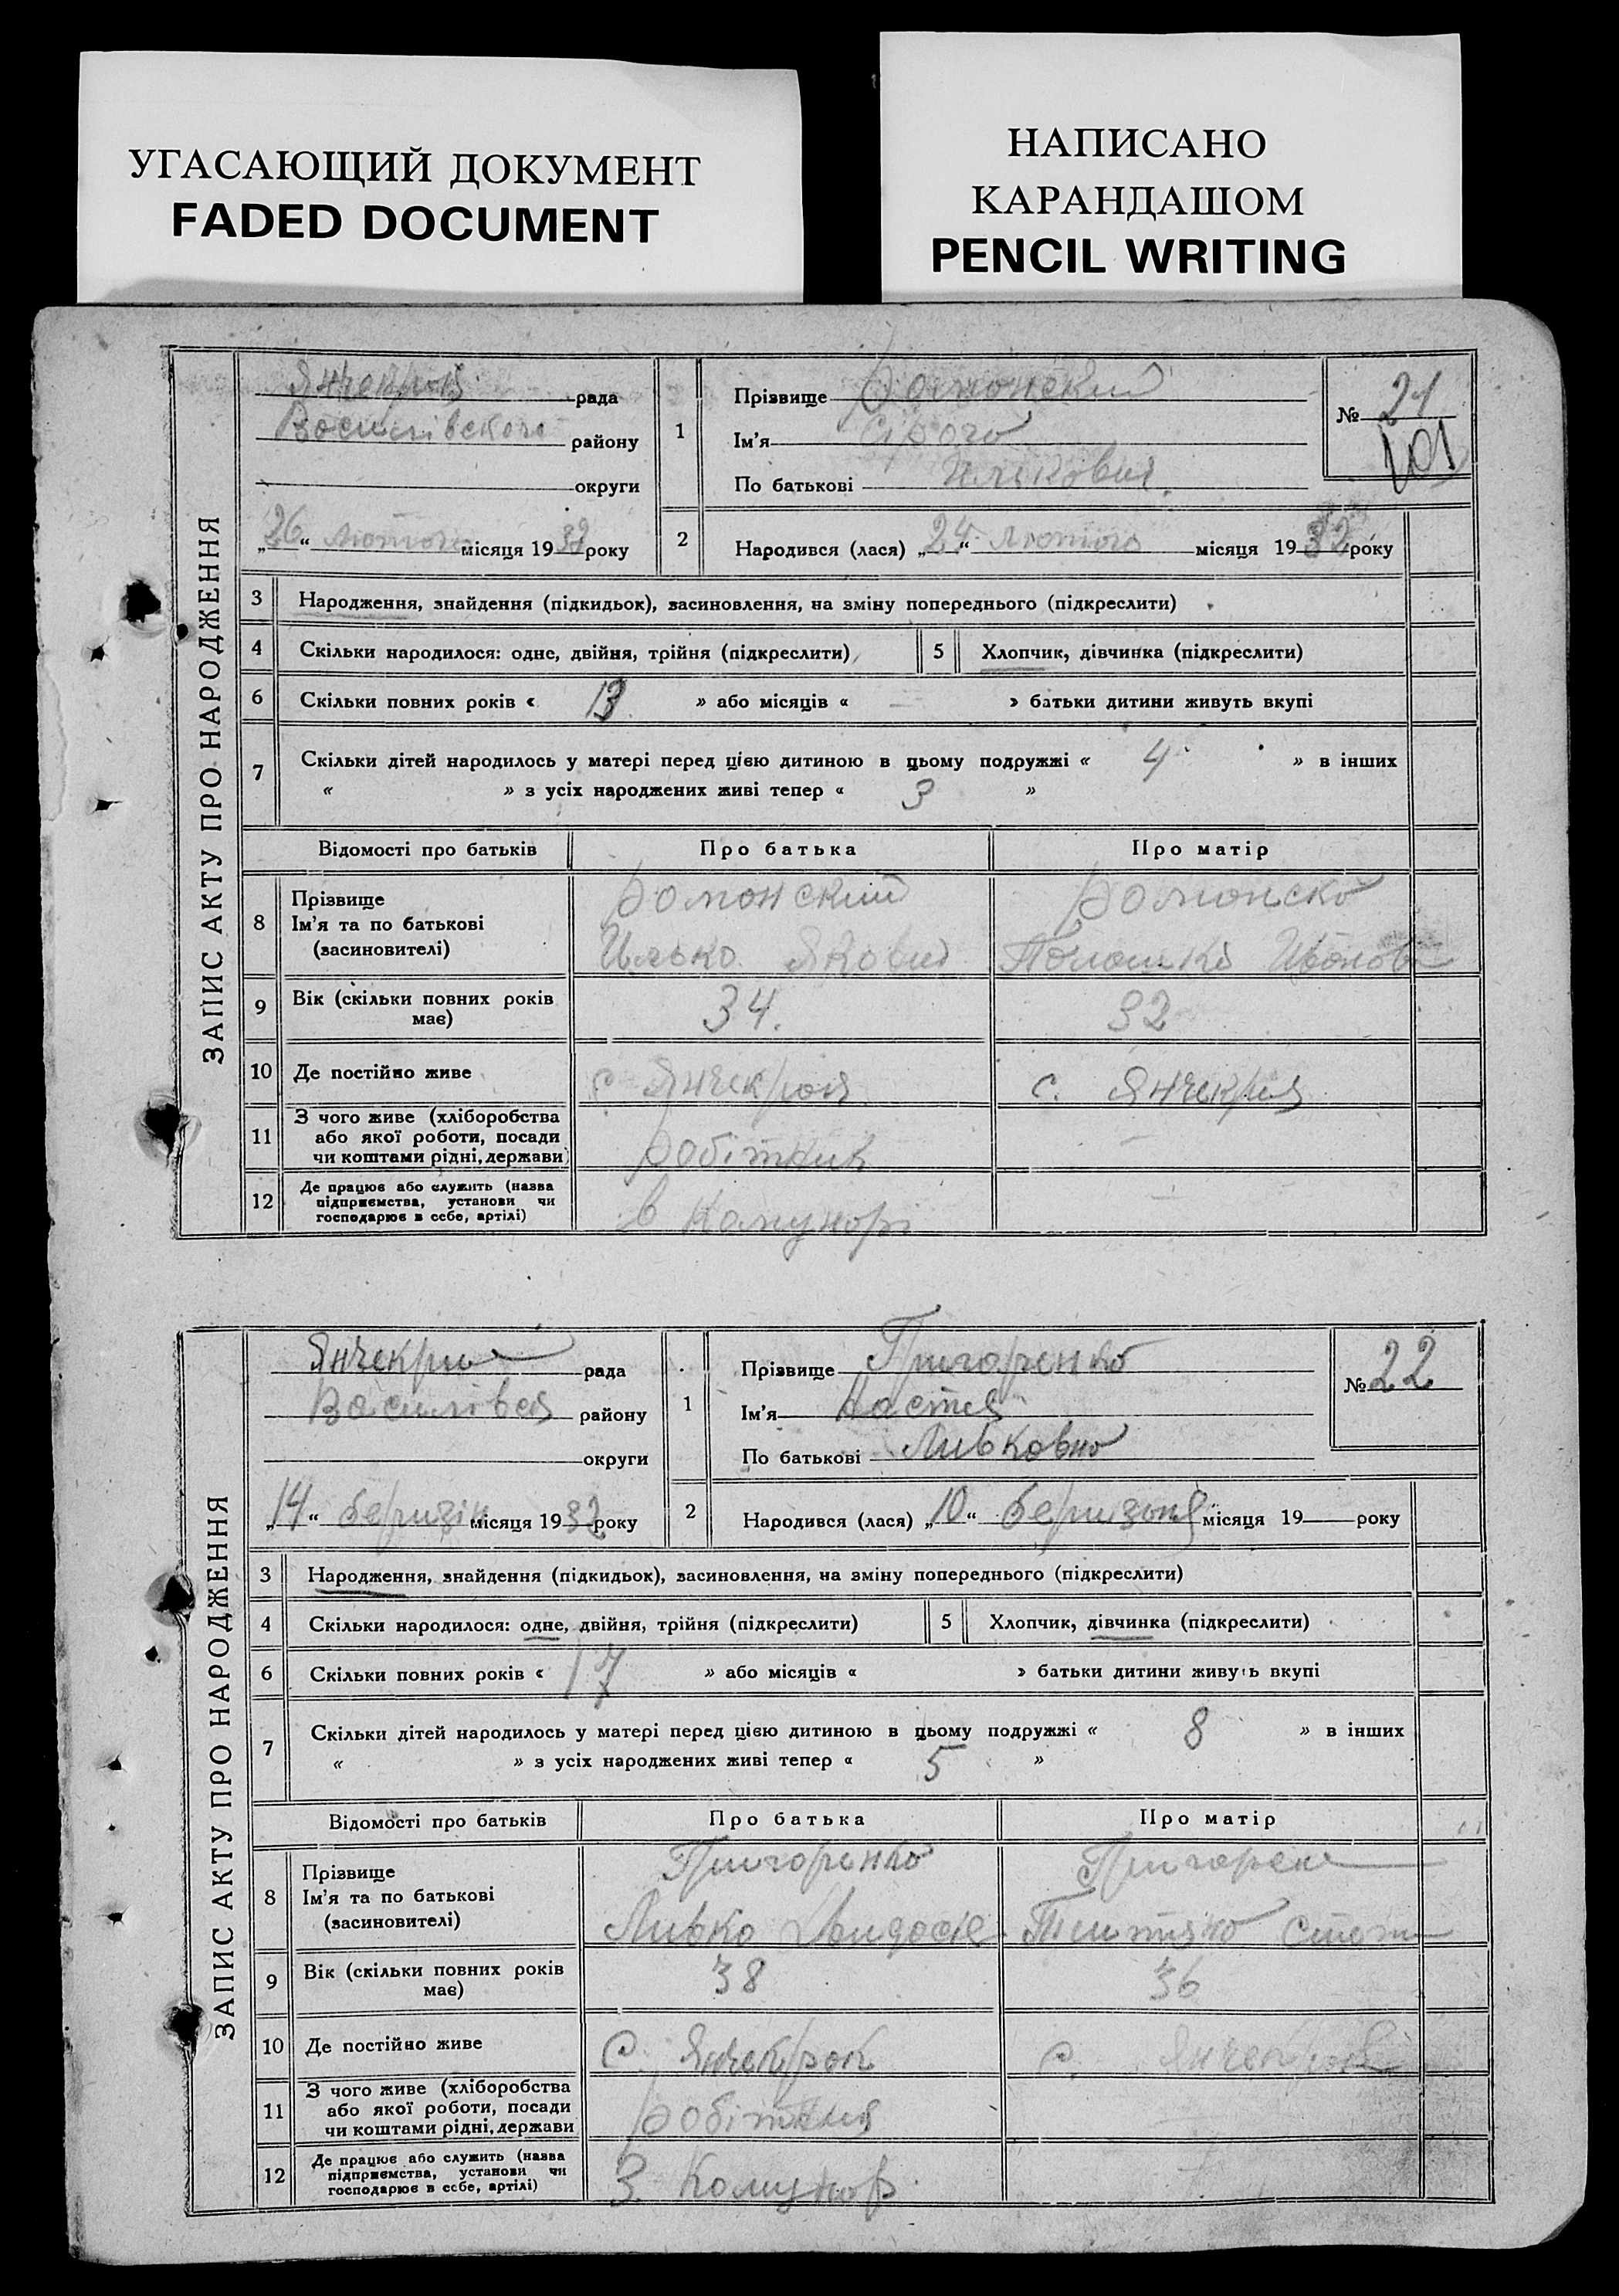 УГАСАЮЩИЙ ДОКУМЕНТ
FADED DOCUMENT
НАПИСАНО
КАРАНДАШОМ
PENCIL WRITING
ЗАПИС АКТУ ПРО НАРОДЖЕННЯ
Янчекрак рада
Василівского району
округи
„26“ Лютого місяця 1932 року
1
Прізвище Романский
Ім'я
По батькові Илькович
№ 21
101
2 Народився (лася) „24“ Лютого місяця 1932 року
3 Народження, знайдення (підкидьок), засиновлення, на зміну попереднього (підкреслити)
4 Скільки народилося: одне, двійня, трійня (підкреслити) 5 Хлопчик, дівчинка (підкреслити)
6 Скільки повних років « 13 » або місяців « — » батьки дитини живуть вкупі
7 Скільки дітей народилось у матері перед цією дитиною в цьому подружжі « 4 » в інших
« » з усіх народжених живі тепер « 3 »
Відомості про батьків Про батька Про матір
8 Прізвище
Ім'я та по батькові
(засиновителі)
Романский
Илько Якович
Романско
9 Вік (скільки повних років має) 34. 32
10 Де постійно живе с Янчекрак с. Янчекрак
11 З чого живе (хліборобства або якої роботи, посади чи коштами рідні, держави) робітник —
12 Де працює або служить (назва підприємства, установи чи господарює в себе, артілі) в Комунарі —
ЗАПИС АКТУ ПРО НАРОДЖЕННЯ
Янчекрак рада
Василівсья району
округи
„14“ беризня місяця 1932 року
1
Прізвище Григоренко
Ім'я Настя
По батьковіЛивковно
№ 22
2 Народився (лася) „10“ беризоня місяця 19 року
3 Народження, знайдення (підкидьок), засиновлення, на зміну попереднього (підкреслити)
4 Скільки народилося: одне, двійня, трійня (підкреслити) 5 Хлопчик, дівчинка (підкреслити)
6 Скільки повних років « 17 » або місяців « » батьки дитини живуть вкупі
7 Скільки дітей народилось у матері перед цією дитиною в цьому подружжі « 8 » в інших
« » з усіх народжених живі тепер « 5 »
Відомості про батьків Про батька Про матір
8 Прізвище
Ім'я та по батькові
(засиновителі)
Григоренко
Ливко
Григорен
9 Вік (скільки повних років має) 38 36
10 Де постійно живе с. Янчекрак с. Янчекрак
11 З чого живе (хліборобства або якої роботи, посади чи коштами рідні, держави робітник
12 Де працює або служить (назва підприємства, установи чи господарює в себе, артілі) З. Комунар